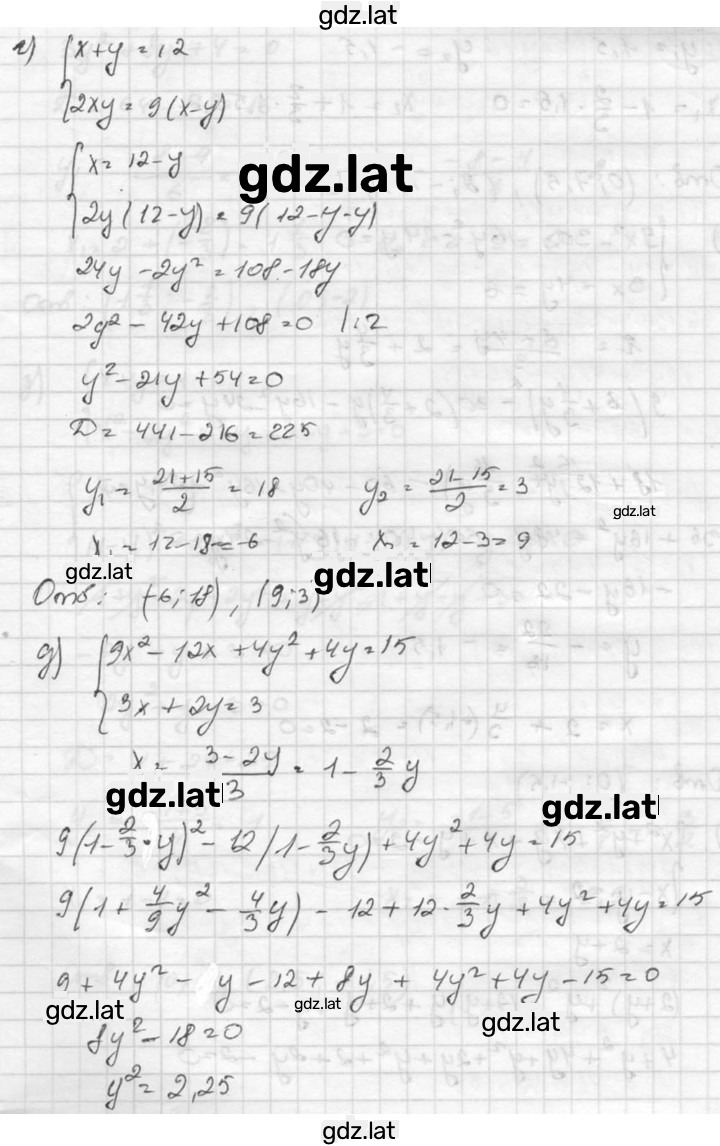 gdz.lat
г) { x+y = 12
2xy = 9(x-y)
{ x = 12-y
gdz.lat
2y(12-y) = 9(12-y-y)
24y - 2y² = 108 - 18y
2y² - 42y + 108 = 0 |:2
y² - 21y + 54 = 0
D = 441 - 216 = 225
y₁ = (21+15)/2 = 18    y₂ = (21-15)/2 = 3
gdz.lat
x₁ = 12-18 = -6    x₂ = 12-3 = 9
gdz.lat gdz.lat
Отв: (-6; 18), (9; 3)
д) { 9x² - 12x + 4y² + 4y = 15
3x + 2y = 3
x = (3-2y)/3 = 1 - 2/3 y
gdz.lat gdz.lat
9(1 - 2/3 · y)² - 12(1 - 2/3 y) + 4y² + 4y = 15
9(1 + 4/9 y² - 4/3 y) - 12 + 12 · 2/3 y + 4y² + 4y = 15
9 + 4y² - y - 12 + 8y + 4y² + 4y - 15 = 0
gdz.lat gdz.lat gdz.lat
8y² - 18 = 0
y² = 2,25
gdz.lat